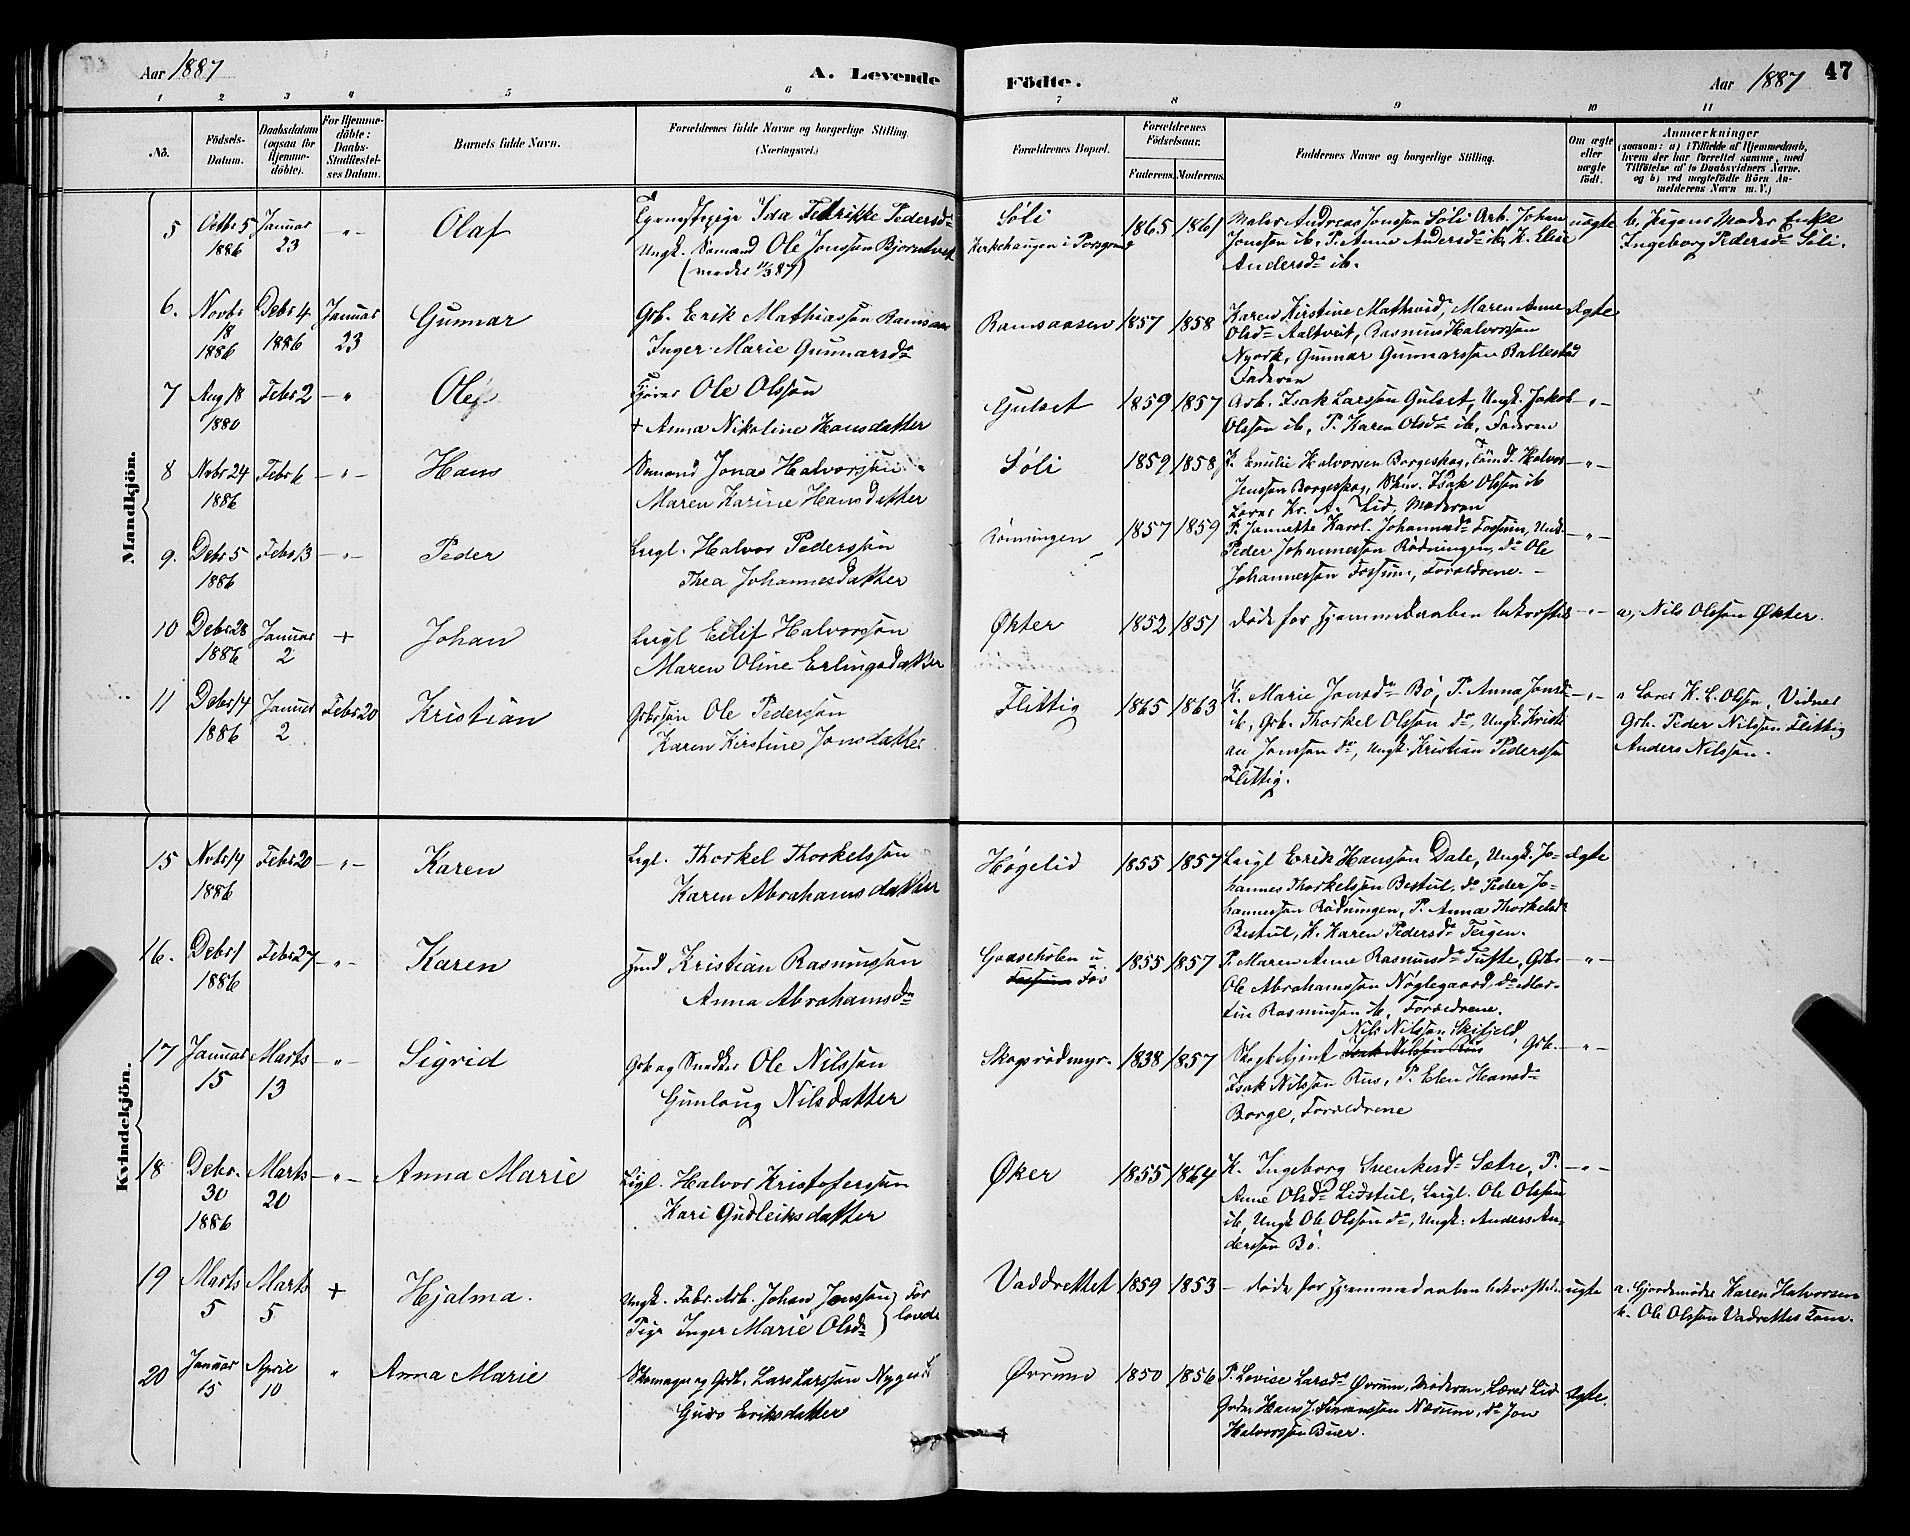 Aar 1887
A. Levende
Födte.
Aar 1887
47
1 2 3 4 5 6 7 8 9 10 11
No.
Födsels-
Datum.
Daabsdatum
(ogsaa for
Hjemme-
döbte).
For Hjemme-
döbte:
Daabs-
Stadfæstel-
ses Datum.
Barnets fulde Navn.
Forældrenes fulde Navne og borgerlige Stilling.
(Næringsvei.)
Forældrenes Bopæl.
Forældrenes
Födselsaar.
Faderens. Moderens.
Faddernes Navne og borgerlige Stilling.
Om ægte
eller
uægte
födt.
Anmærkninger
(saasom: a) i Tilfælde af Hjemmedaab,
hvem der har forrettet samme, med
Tilföielse af to Daabsvidners Navne.
og b) ved uægtefödte Börn An-
melderens Navn m. V.)
Mandkjön.
5
Octbr 5
1886
Januar
23
- " -
Olaf
Tjenestepige Ida Fedrikke Pedersd.
Ungk. Sømand Ole Jonsson Bjorntvet
Søli
Kirkehaugen i Porsgrund
1865 1861
Maler Andreas Jonsson Søli Arb. Johan
Jonsson ib, P. Anne Andersd. ib, K. Elise
Andersd. ib.
uægte
b, Pigens Moder Enke
Ingeborg Pedersd. Søli.
6.
Novbr
18
1886
Debr 4
1886
Januar
23
Gunnar
Grb. Erik Mathiassøn Ramsaas
Inger Marie Gunnarsd.
Ramsaasen
1857 1858
Karen Kirstine Mathiasd, Maren Anne
Olsd. Aaltveit, Rasmus Halvorssøn
Nyork, Gunnar Gunnarssøn Ballestad
Faderen
Ægte
7
Aug 18
1880
Febr 2
- " -
Ole
Ole Olssøn
+ Anna Nikoline Hansdatter
Gulset
1859 1857
Arb. Isak Larssøn Gulset, Ungk. Jakob
Olssøn ib, P. Karen Olsd. ib, Faderen
- " -
8
Novbr 24
1886
Febr 6
- " -
Hans
Sømand Jona Halvorssøn
Maren Karine Hansdatter
Søli
1859 1858
K. Emilie Halvorsen Borgeskag, Tømd. Halvor
Jenssøn Borgeskag, Isak Olssøn ib
Lærer Kr. A. Lid, Moderen
- " -
9.
Debr 5
1886
Febr 13
- " -
Peder
Leigl. Halvor Pederssøn
Thea Johannesdatter
Rønningen
1857 1859
P. Jannette Karol. Johannesd. Fossum, Ungk.
Peder Johannessøn Rødningen, do Ole
Johannessøn Fossum, Forældrene.
- " -
10
Debr 28
1886
Januar
2
+
Johan
Leigl Eilif Halvorssøn
Maren Oline Erlingsdatter
Økter
1852 1851
døde før Hjemmedaaben bekræftedes
- " -
a, Nils Olssøn Økter.
11
Debr 14
1886
Januar
2
Febr 20
Kristian
Grbssøn Ole Pederssøn
Karen Kirstine Jonsdatter
Flittig
1865 1863
K. Marie Jonsd. Bø, P. Anna Jonsd.
ib, Grb. Thorkel Olssøn do, Ungk. Kristi-
an Jonssøn do, Ungk. Kristian Pederssøn
Flittig.
- " -
a Lærer K. L. Olsen, Vidner
Grb. Peder Nilssøn Flittig
Anders Nilssøn.
Kvindekjön.
15
Novbr 14
1886
Febr 20
- " -
Karen
Leigl. Thorkel Thorkelssøn
Karen Abrahamsdatter
Høgelid
1855 1857
Leigl Erik Hanssøn Dale, Ungk. Jo-
hannes Thorkelssøn Bestul, do Peder Jo-
hannessøn Rødningen, P. Anna Thorkelsd.
Bestul, K. Karen Pedersd. Teigen.
Ægte
16.
Debr 1
1886
Febr 27
- " -
Karen
Kristian Rasmussøn
Anna Abrahamsd.
Gaaseholen u
Fossum Fos
1855 1857
P. Maren Anne Rasmusd. Tufte, Grbs.
Ole Abrahamssøn Nøglegaard, do Mar-
tin Rasmussøn ib, Forældrene.
- " -
17
Januar
15
Marts
13
- " -
Sigrid
Grb og Snedker Ole Nilssøn
Gunlaug Nilsdatter
Skogsrødmyr.
1838 1857
Nils Nilssøn Skifjeld,
Skogbetjent Isak Nilssøn Rus Grb.
Isak Nilssøn Rus, P. Elen Hansd.
Borge, Forældrene
- " -
18
Debr.
30
1886
Marts
20
- " -
Anna Marie
Ligl. Halvor Kristoferssøn
Kari Gudleiksdatter
Øker
1855 1864
K. Ingeborg Svenkesd. Sætre, P.
Anne Olsd. Lidstul, Leigl. Ole Olssøn
ib, Ungk Ole Olssøn do, Ungk: Anders An-
derssøn Bø.
- " -
19
Marts
5
Marts
5
+
Hjalma.
Ungk. Fabr. Arb. Johan Jonssøn } For
Pige Inger Marie Olsd. } lovede
Vaddrettet
1859 1853
- døde før Hjemmedaaben bekræftedes
uægte
a. Gjordemoder Karen Halvorsen
b. Ole Olssøn Vadrettes Tom.
20
Januar
15
April
10
"
Anna Marie
Skomager og Grdb. Lars Larssøn Nygaard
Guro Eriksdatter
Øvrum
1850 1856
P. Lovise Larsd. Øvrum, Moderen, Lærer Lid
Grdbr Hans J. Simonssøn Nærum, do Jon
Halvorssøn Buer.
Ægte.